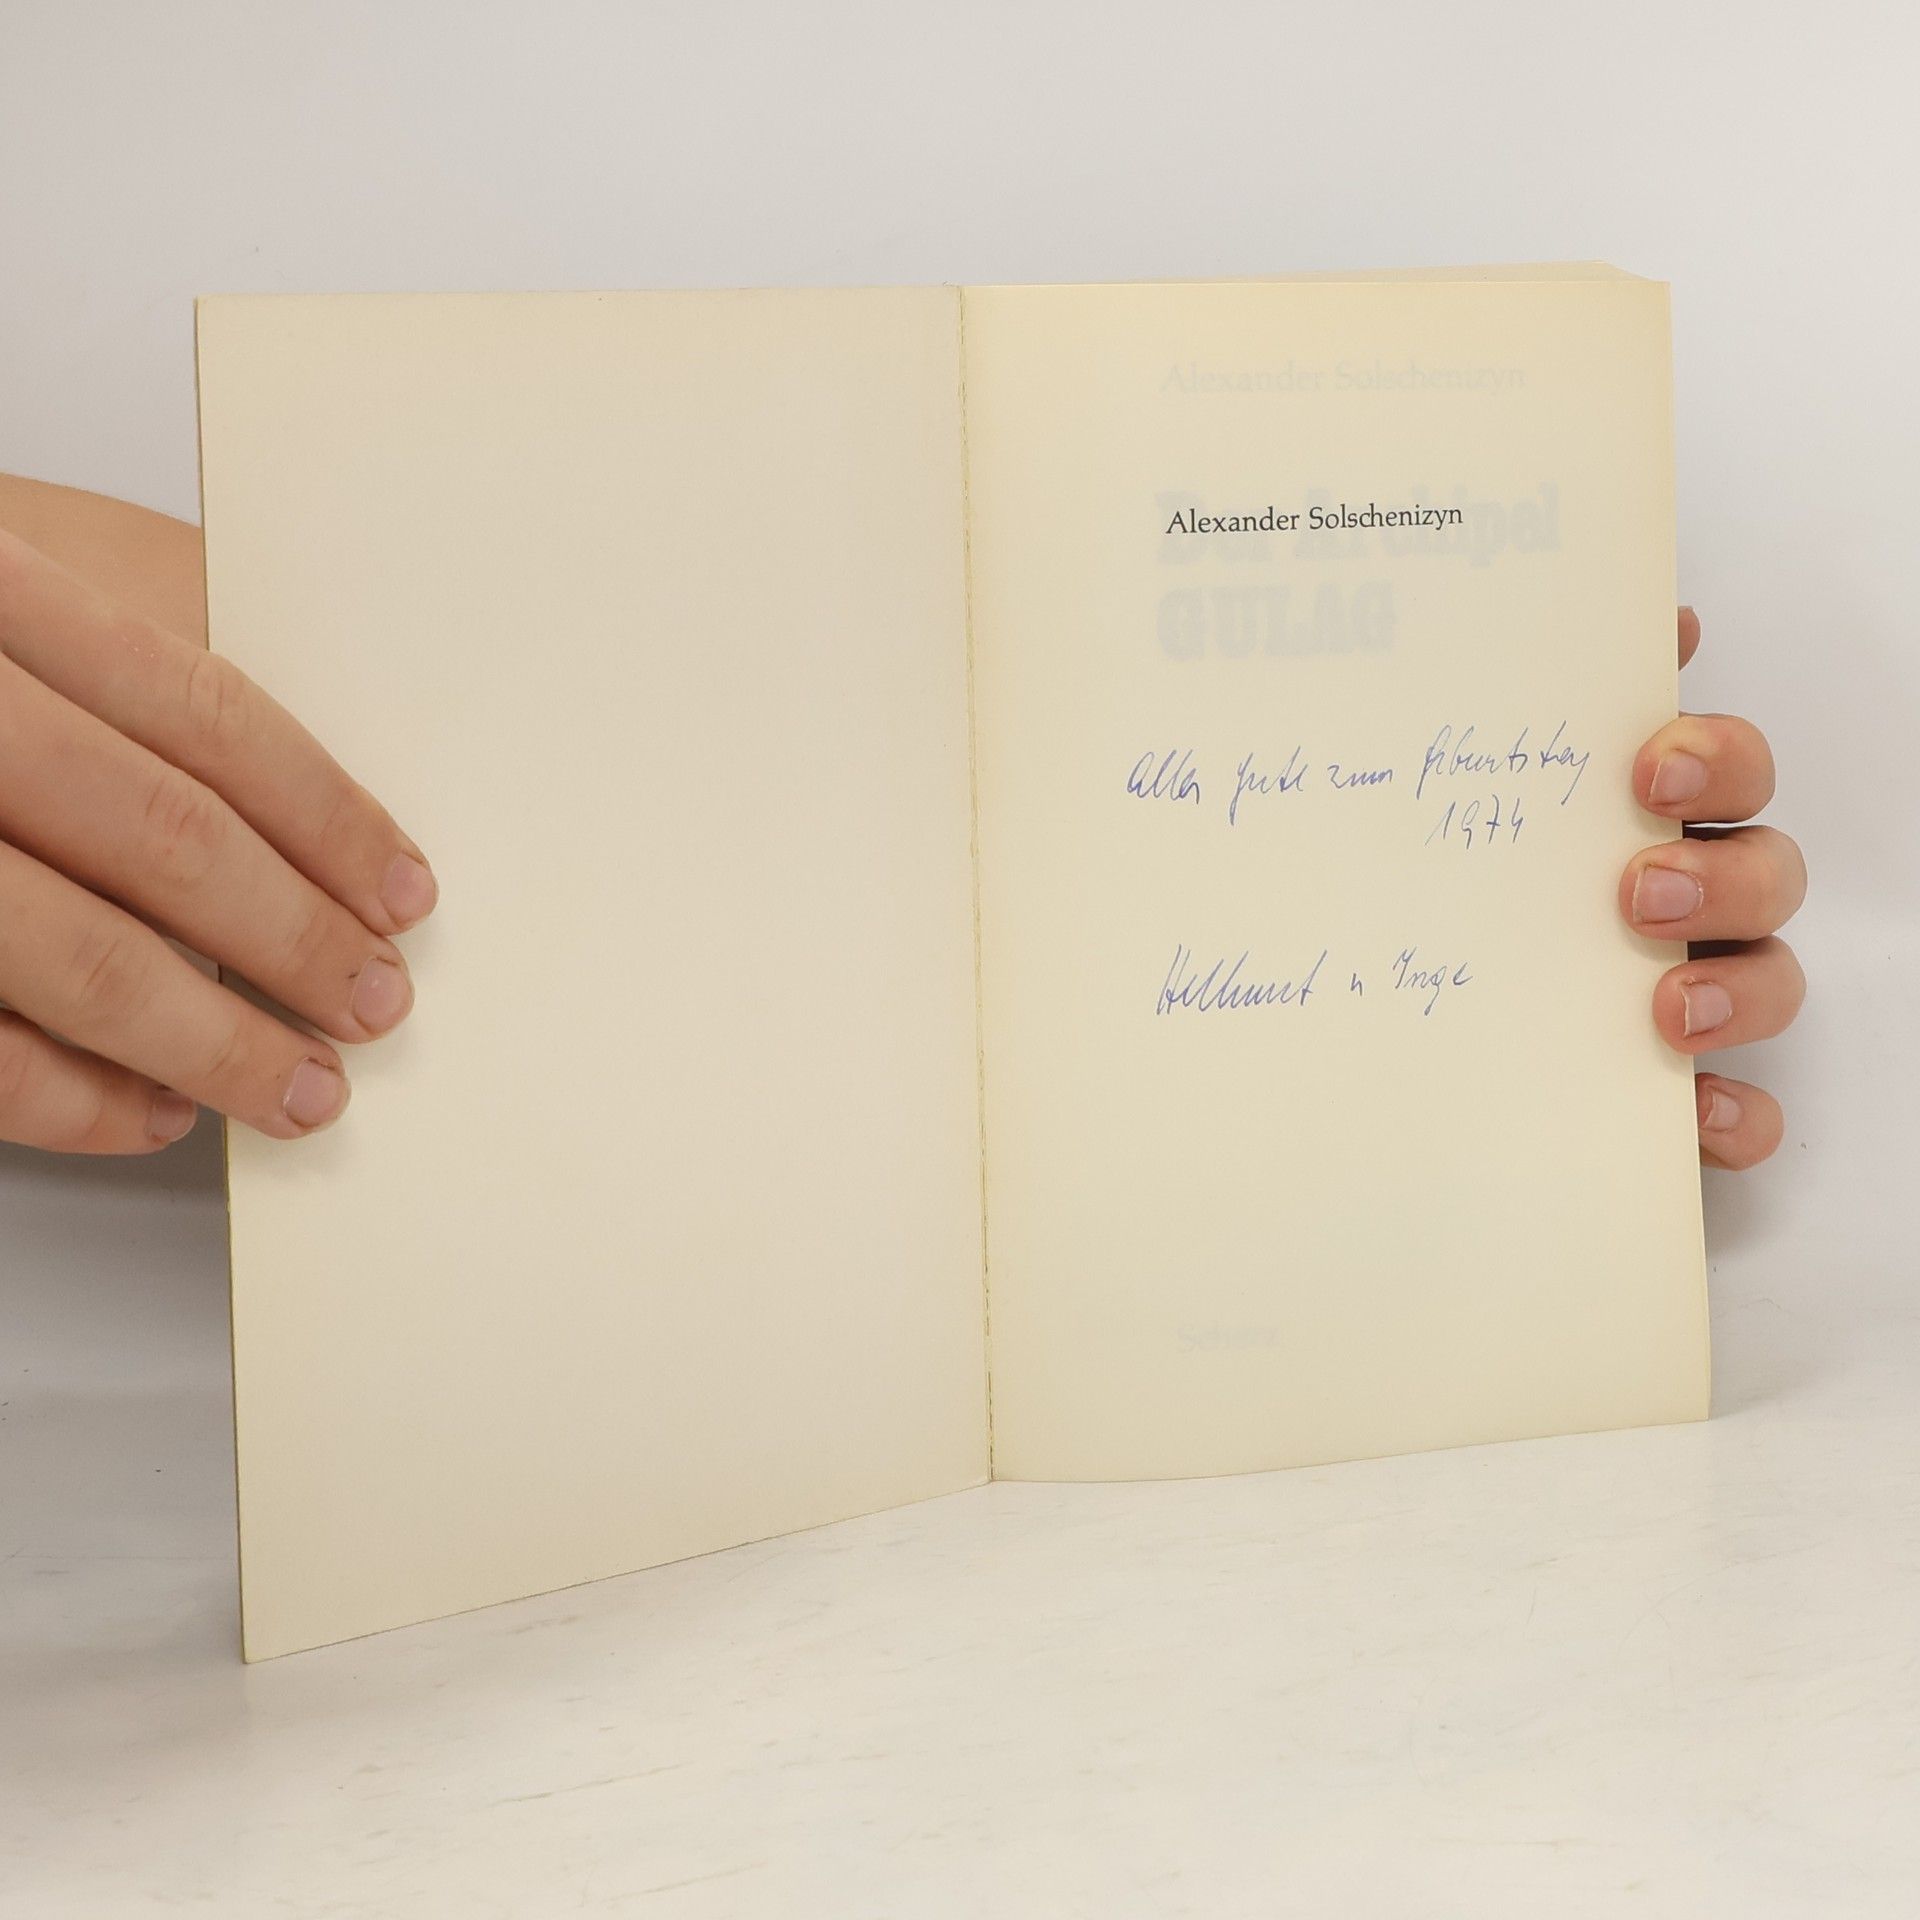 Alexander Solschenizyn
Der Archipel
Alexander Solschenizyn
GULAG
Alles Gute zum Geburtstag
1974
Hellmut u Inge
Scherz